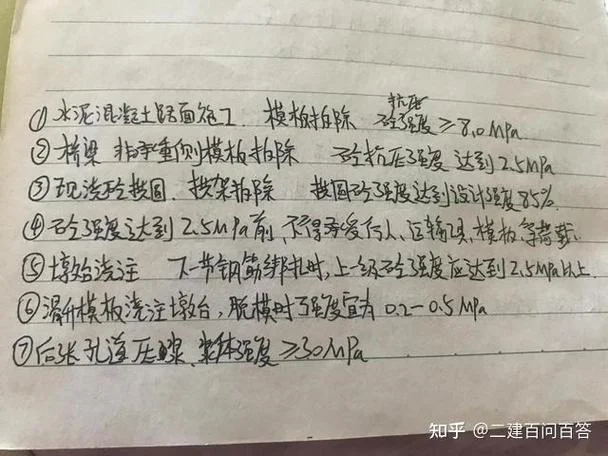 抗压
①水泥混凝土路面施工 模板拆除 砼强度≥8.0MPa
②桥梁 非承重侧模板拆除 砼抗压强度达到2.5MPa
③现浇砼拱圈 拱架拆除 拱圈砼强度达到设计强度85%
④砼强度达到2.5MPa前,不得承受行人、运输工具、模板等荷载.
⑤墩台浇注 下一节钢筋绑扎时,上一级砼强度应达到2.5MPa以上.
⑥滑升模板浇注墩台,脱模时强度宜为0.2-0.5MPa
⑦后张孔道压浆 浆体强度≥30MPa
知乎 @二建百问百答